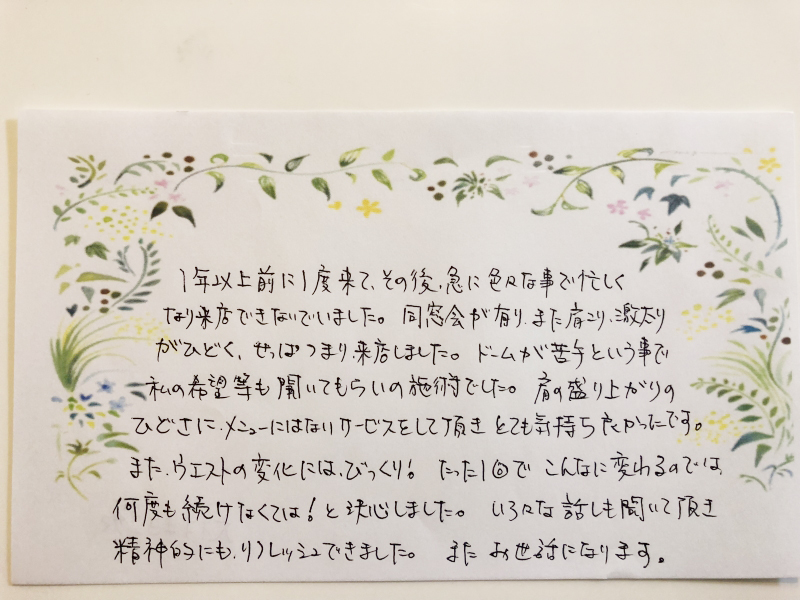 1年以上前に1度来て、その後、急に色々な事で忙しく
なり来店できないでいました。同窓会が有り、また肩こり、激太り
がひどく、せっぱつまり、来店しました。ドームが苦手という事で
私の希望等も聞いてもらいの施術でした。肩の盛り上がりの
ひどさに、メニューにはないサービスをして頂きとても気持ち良かったです。
また、ウエストの変化には、びっくり！たった1回でこんなに変わるのでは、
何度も続けなくては！と決心しました。いろ々な話しも聞いて頂き
精神的にも、リフレッシュできました。またお世話になります。